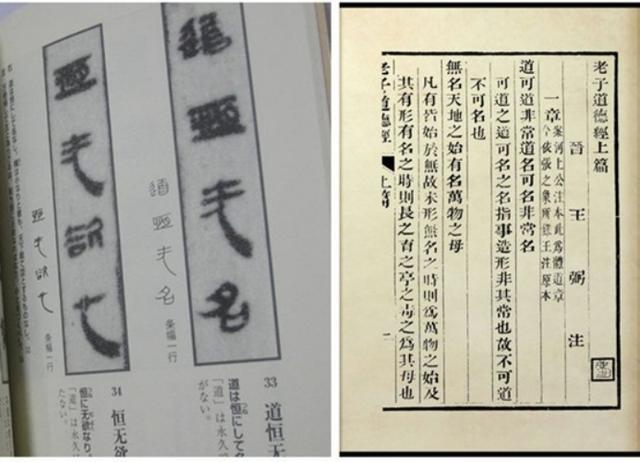 道恒无名
道恒无名
条幅一行
33 道恒无
道は恒にして
「道」は永久
がない。
恒无欲也
恒无欲也
条幅一行
34 恒无欲
恒に无欲なり
「道」は永久
たない。
老子道德經上篇
晉 王 弼 注
一章
案河上公注本此爲體道章
今依張之象所錄王注原本
道可道非常道名可名非常名
可道之道可名之名指事造形非其常也故不可道
不可名也
無名天地之始有名萬物之母
凡有皆始於無故未形無名之時則爲萬物之始及
其有形有名之時則長之育之亭之毒之爲其母也
老子道德經 上篇